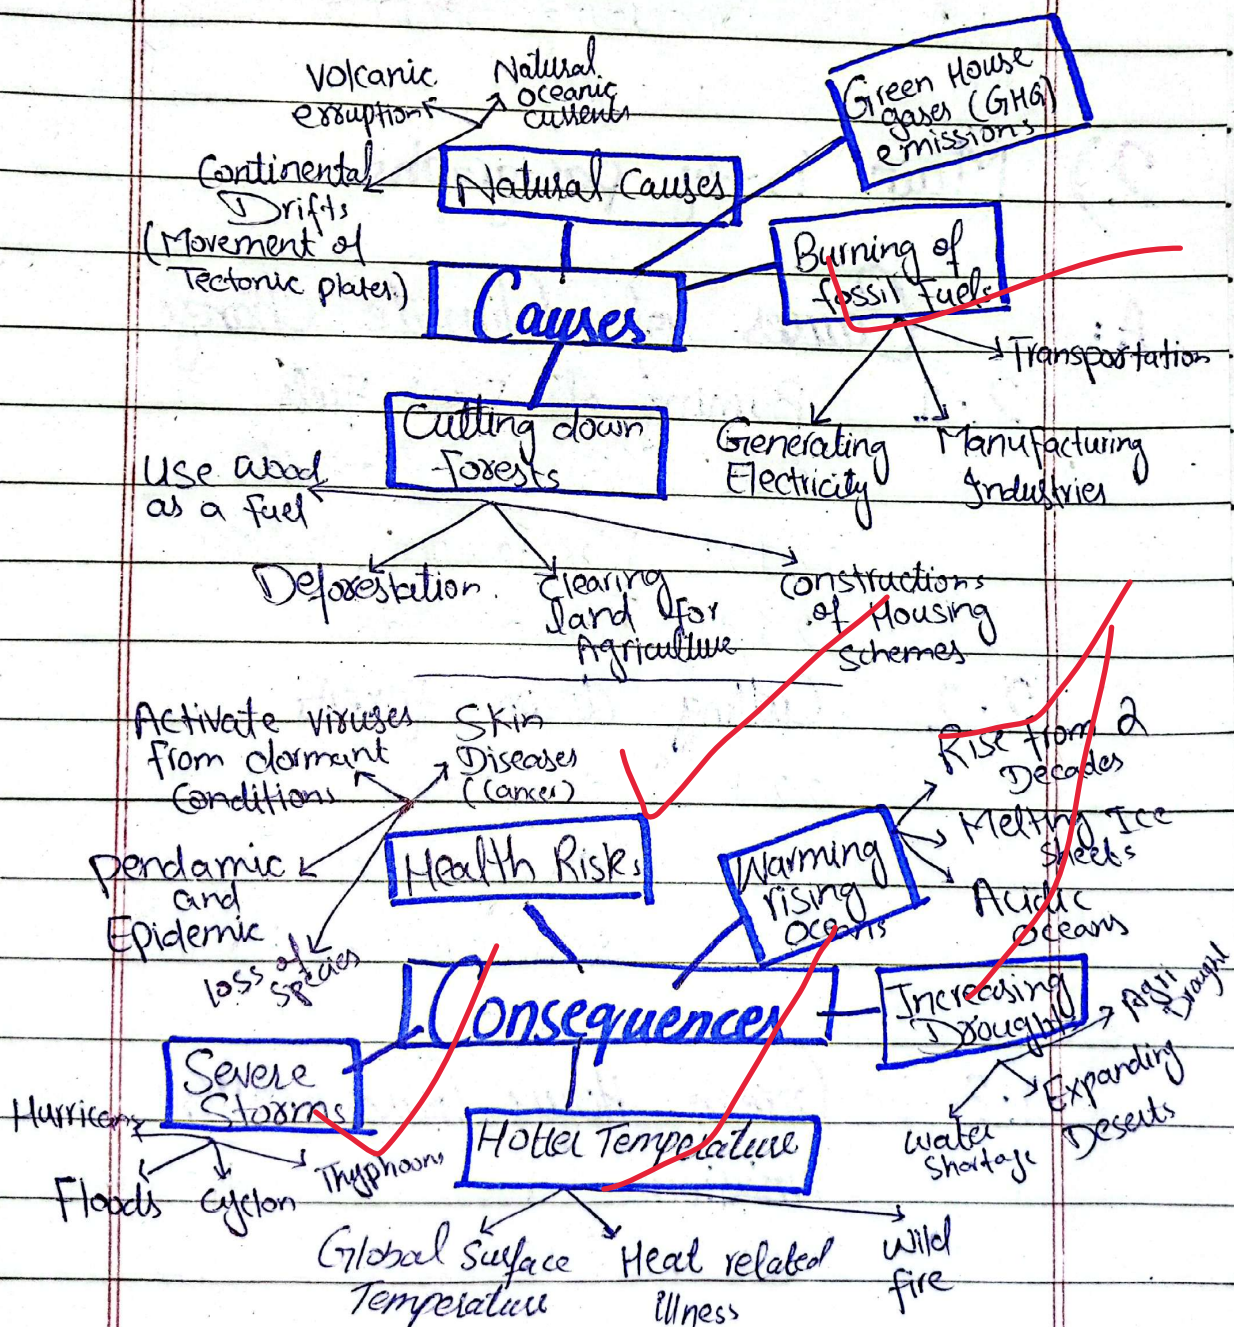 Volcanic
erruption
Natural
oceanic
currents
Green House
gases (GHG)
emissions
Continental
Drifts
(Movement of
Tectonic plates.)
Natural Causes
Burning of
fossil fuels
Causes
Transportation
Generating
Electricity
Manufacturing
Industries
Cutting down
forests
Use wood
as a fuel
Deforestation
Clearing
land for
Agriculture
Constructions
of Housing
Schemes
Activate viruses
from dormant
Conditions
Skin
Diseases
(Cancer)
Rise from 2
Decades
Melting Ice
Sheets
Acidic
Oceans
Health Risks
Warming
rising
Oceans
Pendamic
and
Epidemic
loss of
species
Consequences
Increasing
Drought
Agri
Drought
Expanding
Deserts
Water
Shortage
Severe
Storms
Hurricans
Floods
Cyclon
Thyphoons
Hotter Temperature
Global Surface
Temperature
Heat related
illness
Wild
fire